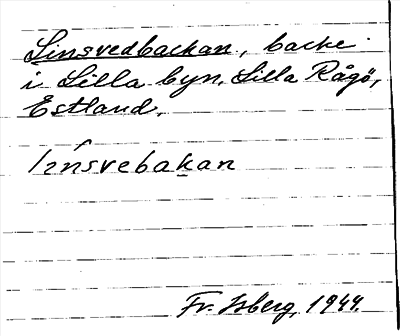 Linsvedbackan, backe
i Lilla byn, Lilla Rågö,
Estland.
linsvebakan
Fr. Isberg, 1944.